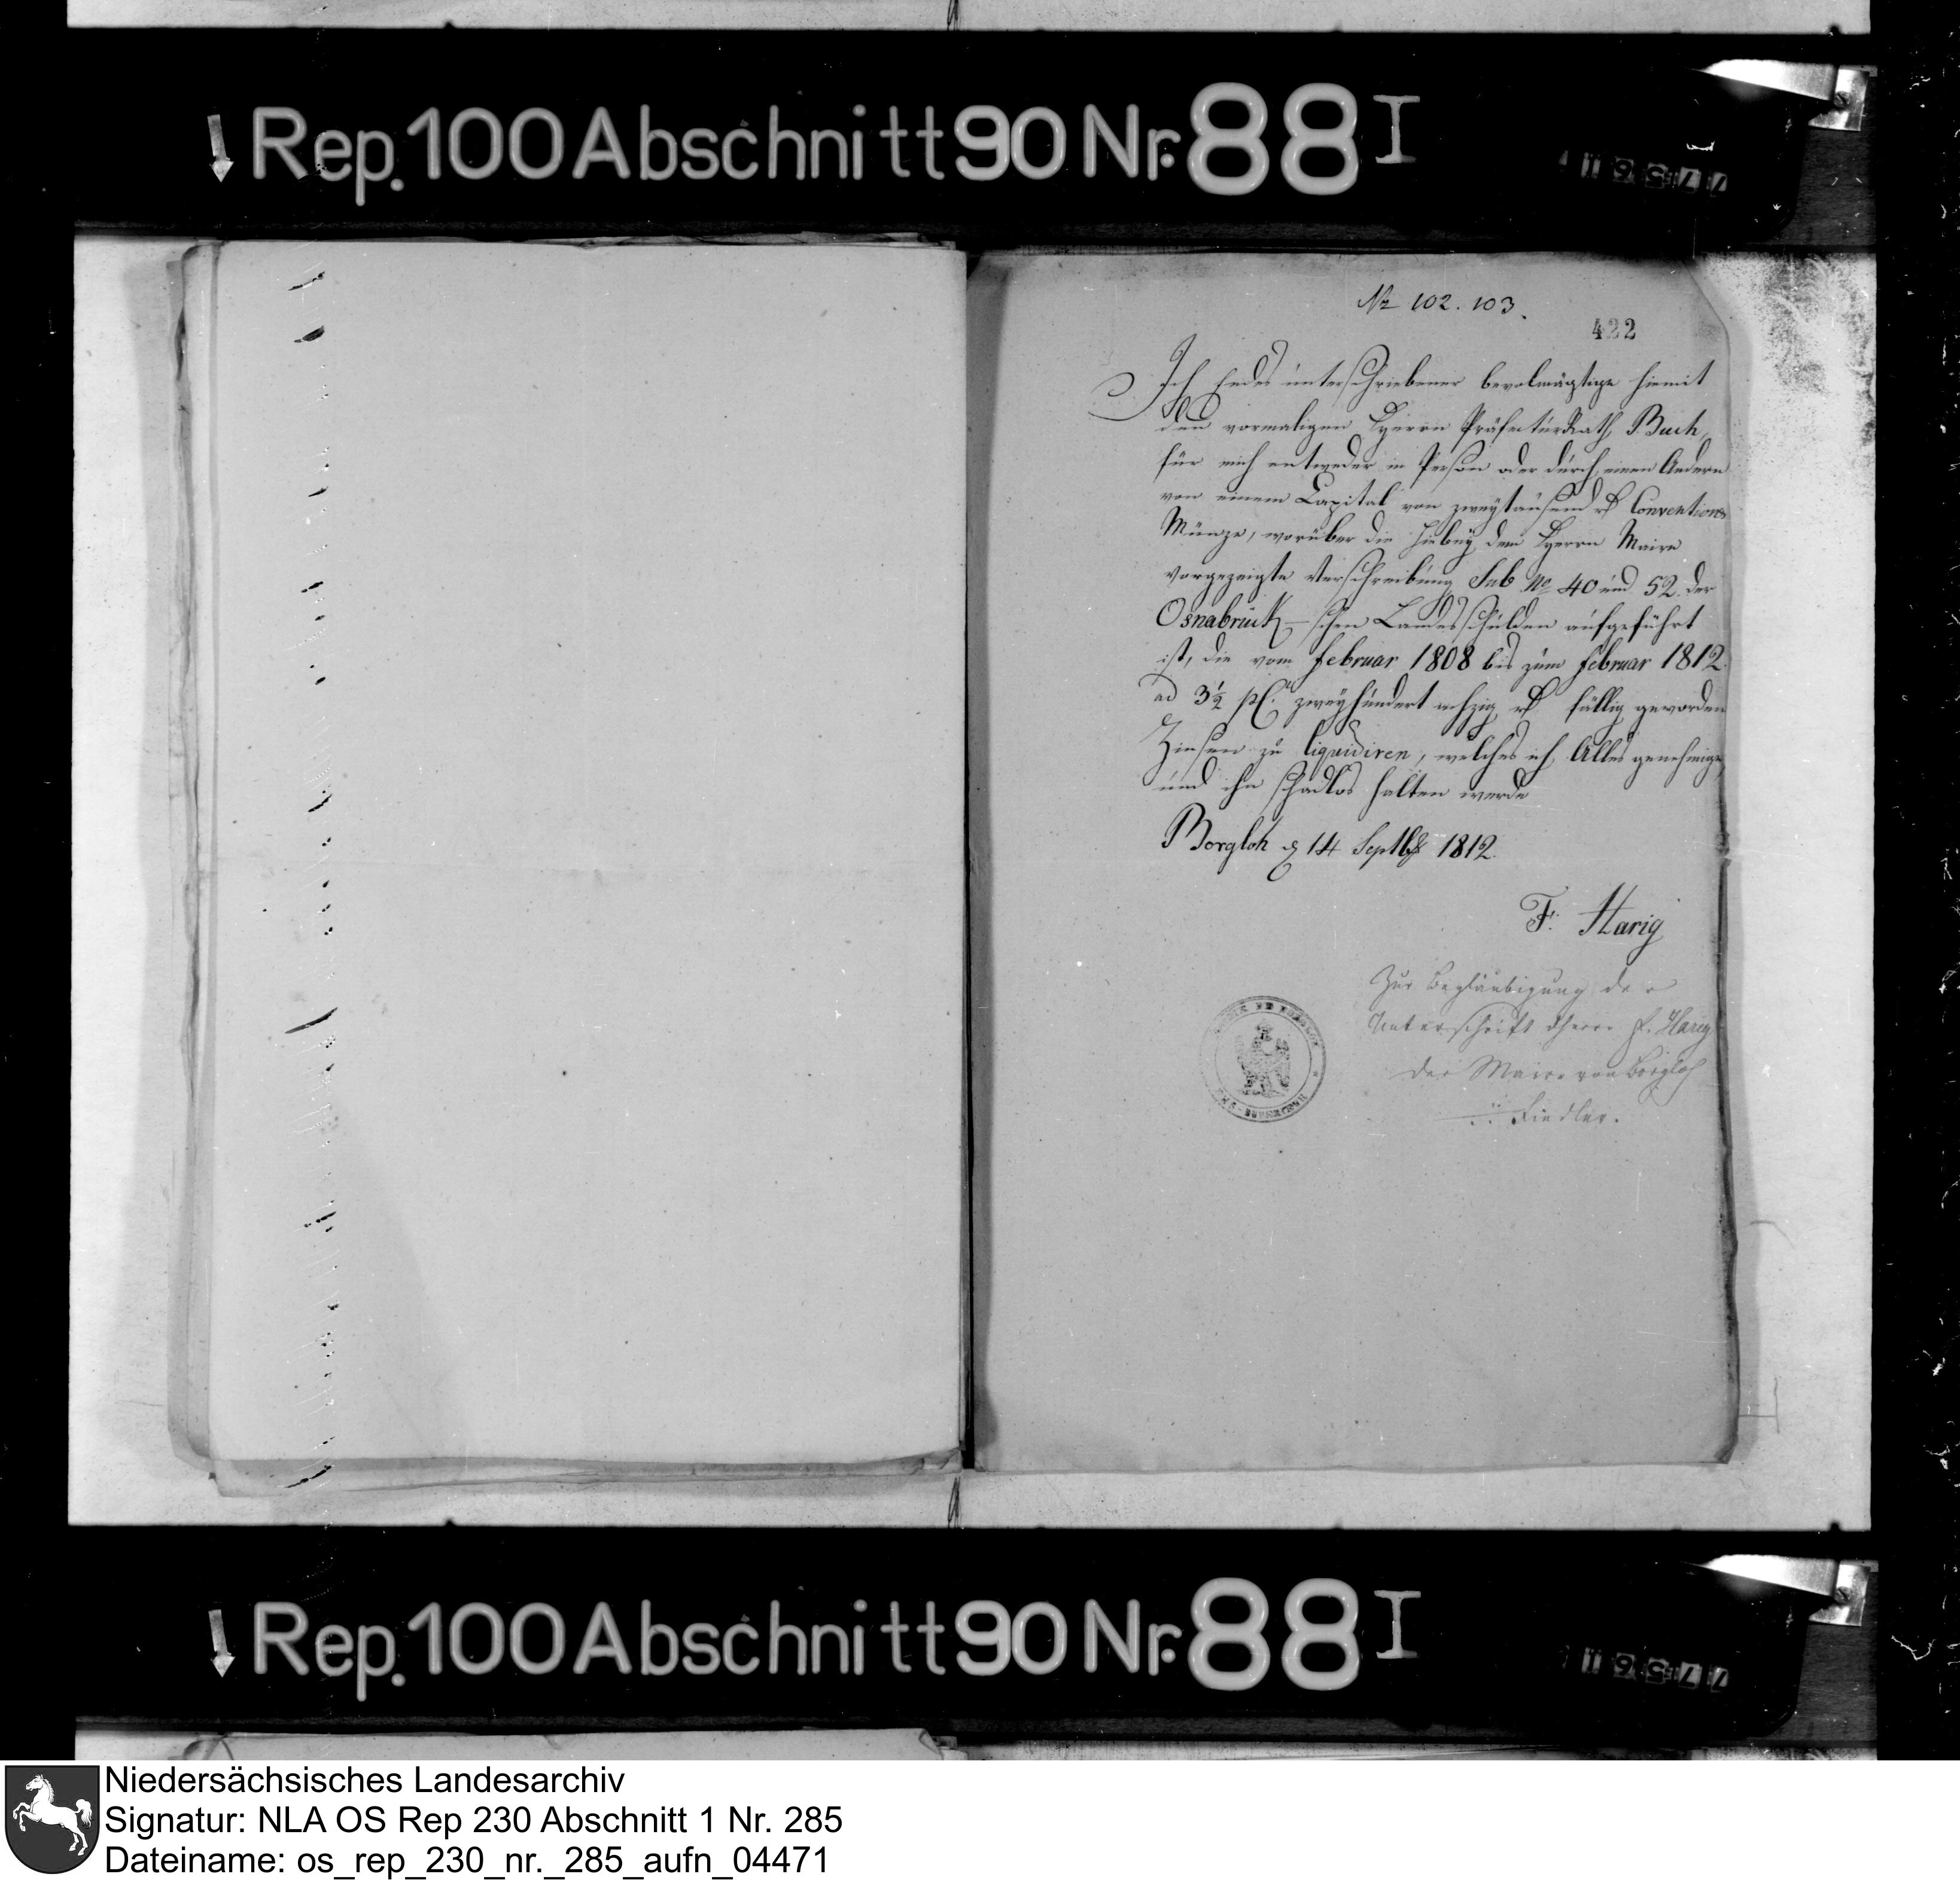 Rep. 100 Abschnitt 90 Nr. 88 I
No 102. 103.
422
Ich Endes unterschriebener bevolmägtige hiemit
den vormaligen Herrn PräfecturRath Buch,
für mich entweder in Person oder durch einen Andern
von einem Capital von zweytausend rth Conventions
Münze, worüber die hiebey dem Herrn Maire
vorgezeigte Verschreibung Sub No 40 und 52 der
Osnabrück-schen Landesschulden aufgeführt
ist, die vom Februar 1808 bis zum Februar 1812
ad 3½ pCt. zweyhundert achzig rth fällig geworden
Zinsen zu liquidiren, welches ich Alles genehmige,
und ihn schadlos halten werde
Borgloh d 14 Septbr 1812.
F. Harig
Zur Beglaubigung der
Unterschrift Herrn F. Harig
der Maire von Borgloh
Fiedler.
Rep. 100 Abschnitt 90 Nr. 88 I
Niedersächsisches Landesarchiv
Signatur: NLA OS Rep 230 Abschnitt 1 Nr. 285
Dateiname: os_rep_230_nr._285_aufn_04471